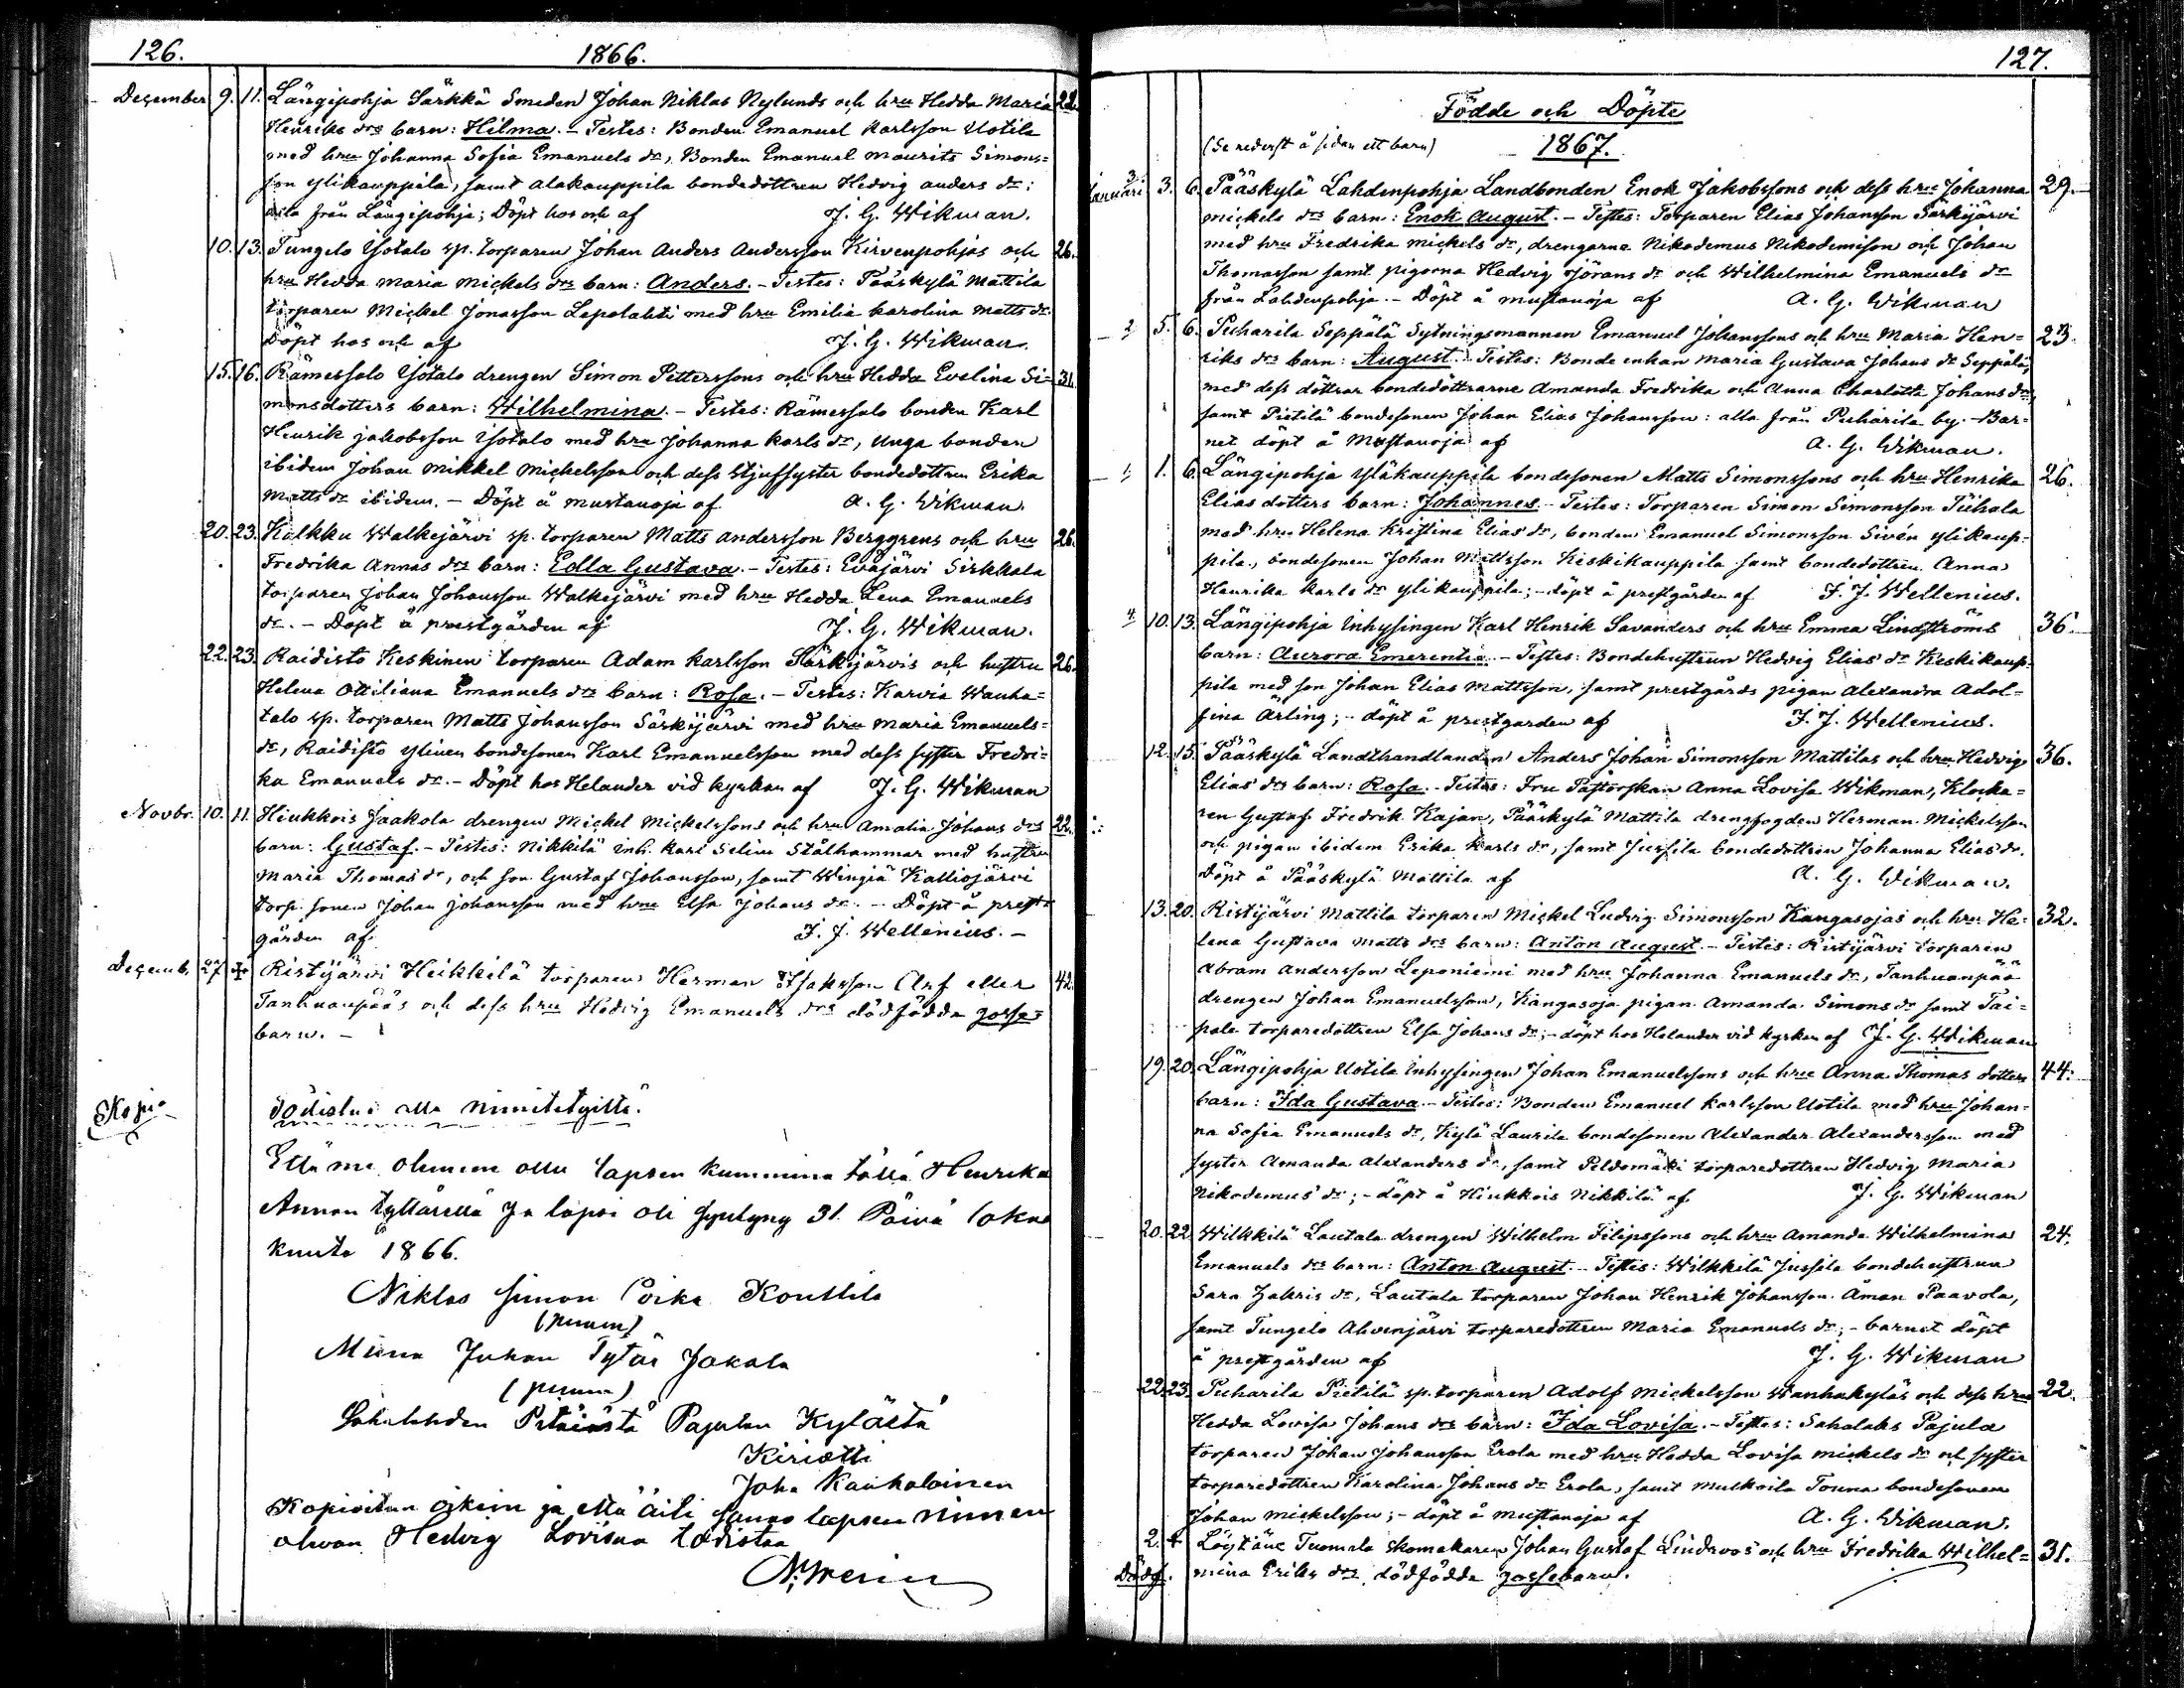 126.
1866.
December 9. 11. Längipohja Särkkä Smeden Johan Niklas Nylunds och hru Hedda Maria 22.
Henriks drs barn: Hilma. - Testes: Bonden Emanuel Karlsson Uotila
med hru Johanna Sofia Emanuels dr, Bonden Emanuel Maurits Simons=
son Ylikauppila, samt Alakauppila bondedottren Hedvig Anders dr;
alla från Längipohja; Döpt hos och af J. G. Wikman.
10. 13. Tungelo Isotalo sp. torparen Johan Anders Andersson Kirvenpohjas och 26.
hru Hedda Maria Mickels drs barn: Anders. - Testes: Pääskylä Mattila
torparen Mickel Jonasson Lepolahti med hru Emilia Karolina Matts dr.
Döpt hos och af J. G. Wikman.
15. 16. Rämessalo Isotalo drengen Simon Petterssons och hru Hedda Evelina Si= 31.
monsdotters barn: Wilhelmina. - Testes: Rämessalo bonden Karl
Henrik Jakobsson Isotalo med hru Johanna Karls dr, unga bonden
ibidem Johan Mikkel Mickelsson och dess stjufsyster bondedottren Erika
Matts dr ibidem. - Döpt å Mustanoja af A. G. Wikman.
20. 23. Kalkku Walkejärvi sp. torparen Matts Andersson Berggrens och hru 26.
Fredrika Annas drs barn: Edla Gustava. - Testes: Eväjärvi Sirkkala
torparen Johan Johansson Walkejärvi med hru Hedda Lena Emanuels
dr. - Döpt å prestgården af J. G. Wikman.
22. 23. Raidisto Keskinen torparen Adam Karlsson Särkijärvis och hustru 26.
Helena Ottiliana Emanuels drs barn: Rosa. - Testes: Karvia Wanha=
talo sp. torparen Matts Johansson Särkijärvi med hru Maria Emanuels=
dr, Raidisto Ylinen bondesonen Karl Emanuelsson med dess syster Fredri=
ka Emanuels dr. - Döpt hos Helander vid kyrkan af J. G. Wikman
Novbr. 10. 11. Hiukkois Jaakola drengen Mickel Mickelssons och hru Amalia Johans drs 22.
barn: Gustaf. - Testes: Nikkilä inh. Karl Selim Stålhammar med hustru
Maria Thomas dr, och son Gustaf Johansson, samt Wengiä Kalliojärvi
torp. sonen Johan Johansson med hru Elsa Johans dr. - Döpt å prest=
gården af F. J. Wellenius. -
Decemb. 27 Ristijärvi Heikkilä torparen Herman Isaksson Arf eller 42.
Tanhuanpääs och dess hru Hedvig Emanuels drs dödfödda gosse=
barn. -
Kopia
Todistus alla nimitetyiltä.
Että me olemme ollu lapsen kummina tällä Henrika
Annan tyttärellä Ja lapsi oli syntyny 31 Päivä loka
kuuta 1866.
Niklas Simon Poika Konttila
(puum)
Miina Juhan Tytär Jakala
(puum)
Sahalahden Pitäjästä Pajulan Kylästä
Kirioitti
Joha Kauhalainen
Kopioitun oikein ja että äiti sanoo lapsen nimen
olevan Hedvig Lovisan todistaa
127.
Födde och Döpte
1867.
(Se nederst å sidan ett barn)
Januari 3. 6. Pääskylä Lahdenpohja Landbonden Enok Jakobssons och dess hru Johanna 29.
Mickels drs barn: Enok August. - Testes: Torparen Elias Johansson Särkijärvi
med hru Fredrika Mickels dr, drengarne Nikodemus Nikodemisson och Johan
Thomasson samt pigorna Hedvig Jörans dr och Wilhelmina Emanuels dr
från Lahdenpohja. - Döpt å Mustanoja af A. G. Wikman
2 5. 6. Puharila Seppälä Sytningsmannen Emanuel Johanssons och hru Maria Hen= 23.
riks drs barn: August. Testes: Bonde enkan Maria Gustava Johans dr Seppälä,
med dess döttrar bondedöttrarne Amanda Fredrika och Anna Charlotta Johans drr,
samt Pietilä bondesonen Johan Elias Johansson: alla från Puharila by. - Bar=
net döpt å Mustanoja af A. G. Wikman.
1. 6. Längipohja Yläkauppila bondesonen Matts Simonssons och hru Henrika 26.
Elias dotters barn: Johannes. - Testes: Torparen Simon Simonsson Tiihala
med hru Helena Kristina Elias dr, bonden Emanuel Simonsson Sivén Ylikaup=
pila, bondesonen Johan Mattsson Keskikauppila samt bondedottren Anna
Henrika Karls dr Ylikauppila; - döpt å prestgården af F. J. Wellenius.
4 10. 13. Längipohja Inhysingen Karl Henrik Savanders och hru Emma Lindströms 36.
barn: Aurora Emerentia. - Testes: Bondehustrun Hedvig Elias dr Keskikaup=
pila med son Johan Elias Mattsson, samt prestgårds pigan Alexandra Adol=
fina Ärling; - döpt å prestgården af F. J. Wellenius.
12. 15. Pääskylä Landthandlanden Anders Johan Simonsson Mattilas och hru Hedvig 36.
Elias drs barn: Rosa. - Testes: Fru Pastorskan Anna Lovisa Wikman, Klocka=
ren Gustaf Fredrik Kajan, Pääskylä Mattila drengfogden Herman Mickelsson
och pigan ibidem Erika Karls dr, samt Jussila bondedottren Johanna Elias dr.
Döpt å Pääskylä Mattila af A. G. Wikman.
13. 20. Ristijärvi Mattila torparen Mickel Ludvig Simonsson Kangasojas och hru He= 32.
lena Gustava Matts drs barn: Anton August. - Testes: Ristijärvi torparen
Abram Andersson Leponiemi med hru Johanna Emanuels dr, Tanhuanpää
drengen Johan Emanuelsson, Kangasoja pigan Amanda Simons dr samt Tai=
pale torparedottren Elsa Johans dr; - döpt hos Helander vid kyrkan af J. G. Wikman
19. 20. Längipohja Uotila Inhysingen Johan Emanuelssons och hru Anna Thomas dotters 44.
barn: Ida Gustava. - Testes: Bonden Emanuel Karlsson Uotila med hru Johan=
na Sofia Emanuels dr, Kylä Laurila bondesonen Alexander Alexandersson med
syster Amanda Alexanders dr, samt Peldomäki torparedottren Hedvig Maria
Nikodemus dr; - döpt å Hiukkois Nikkilä af J. G. Wikman
20. 22. Wilkkilä Lautala drengen Wilhelm Filipssons och hru Amanda Wilhelmina 24.
Emanuels drs barn: Anton August. - Testes: Wilkkilä Jussila bondehustrun
Sara Zakris dr, Lautala torparen Johan Henrik Johansson Åman Paavola,
samt Tungelo Ahvenjärvi torparedottren Maria Emanuels dr; - barnet döpt
å prestgården af J. G. Wikman
22. 23. Puharila Pietilä sp. torparen Adolf Mickelsson Wanhakyläs och dess hru 22.
Hedda Lovisa Johans drs barn: Ida Lovisa. - Testes: Sahalaks Pajula
torparen Johan Johansson Erola med hru Hedda Lovisa Mickels dr och syster
torparedottren Karolina Johans dr Erola, samt Muskoila Touna bondesonen
Johan Mickelsson; - döpt å Mustanoja af A. G. Wikman.
2. Löytäne Tuomala skomakaren Johan Gustaf Lindroos och hru Fredrika Wilhel= 31.
Dödf. mina Eriks drs dödfödda gossebarn.